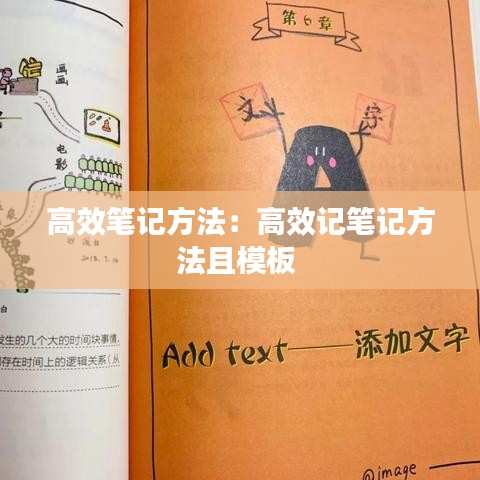 第6章
文
字
画画
电影
高效笔记方法：高效记笔记方
法且模板
2018.7.16
发生的几个大的时间块事情，
存在时间上的逻辑关系（从
Add text——添加文字
@image